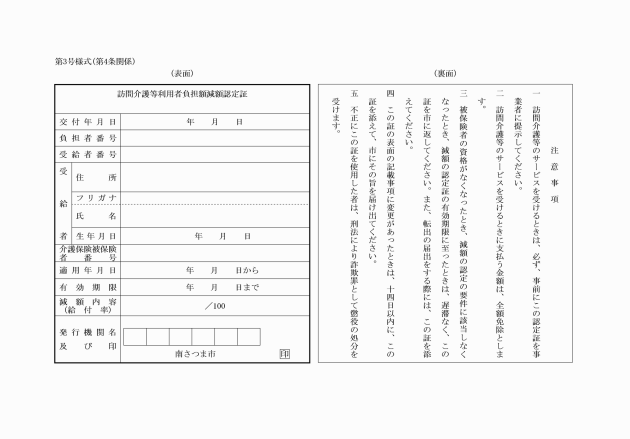 第3号様式(第4条関係)
(表面)
訪問介護等利用者負担額減額認定証
交付年月日 年 月 日
負担者番号
受給者番号
受給者
住所
フリガナ
氏名
生年月日 年 月 日
介護保険被保険
者番号
適用年月日 年 月 日から
有効期限 年 月 日まで
減額内容
(給付率)
／100
発行機関名
及び印
南さつま市 印
(裏面)
注意事項
一 訪問介護等のサービスを受けるときは、必ず、事前にこの認定証を事
業者に提示してください。
二 訪問介護等のサービスを受けるときに支払う金額は、全額免除としま
す。
三 被保険者の資格がなくなったとき、減額の認定の要件に該当しなく
なったとき、減額の認定証の有効期限に至ったときは、遅滞なく、この
証を市に返してください。また、転出の届出をする際には、この証を添
えてください。
四 この証の表面の記載事項に変更があったときは、十四日以内に、この
証を添えて、市にその旨を届け出てください。
五 不正にこの証を使用した者は、刑法により詐欺罪として懲役の処分を
受けます。